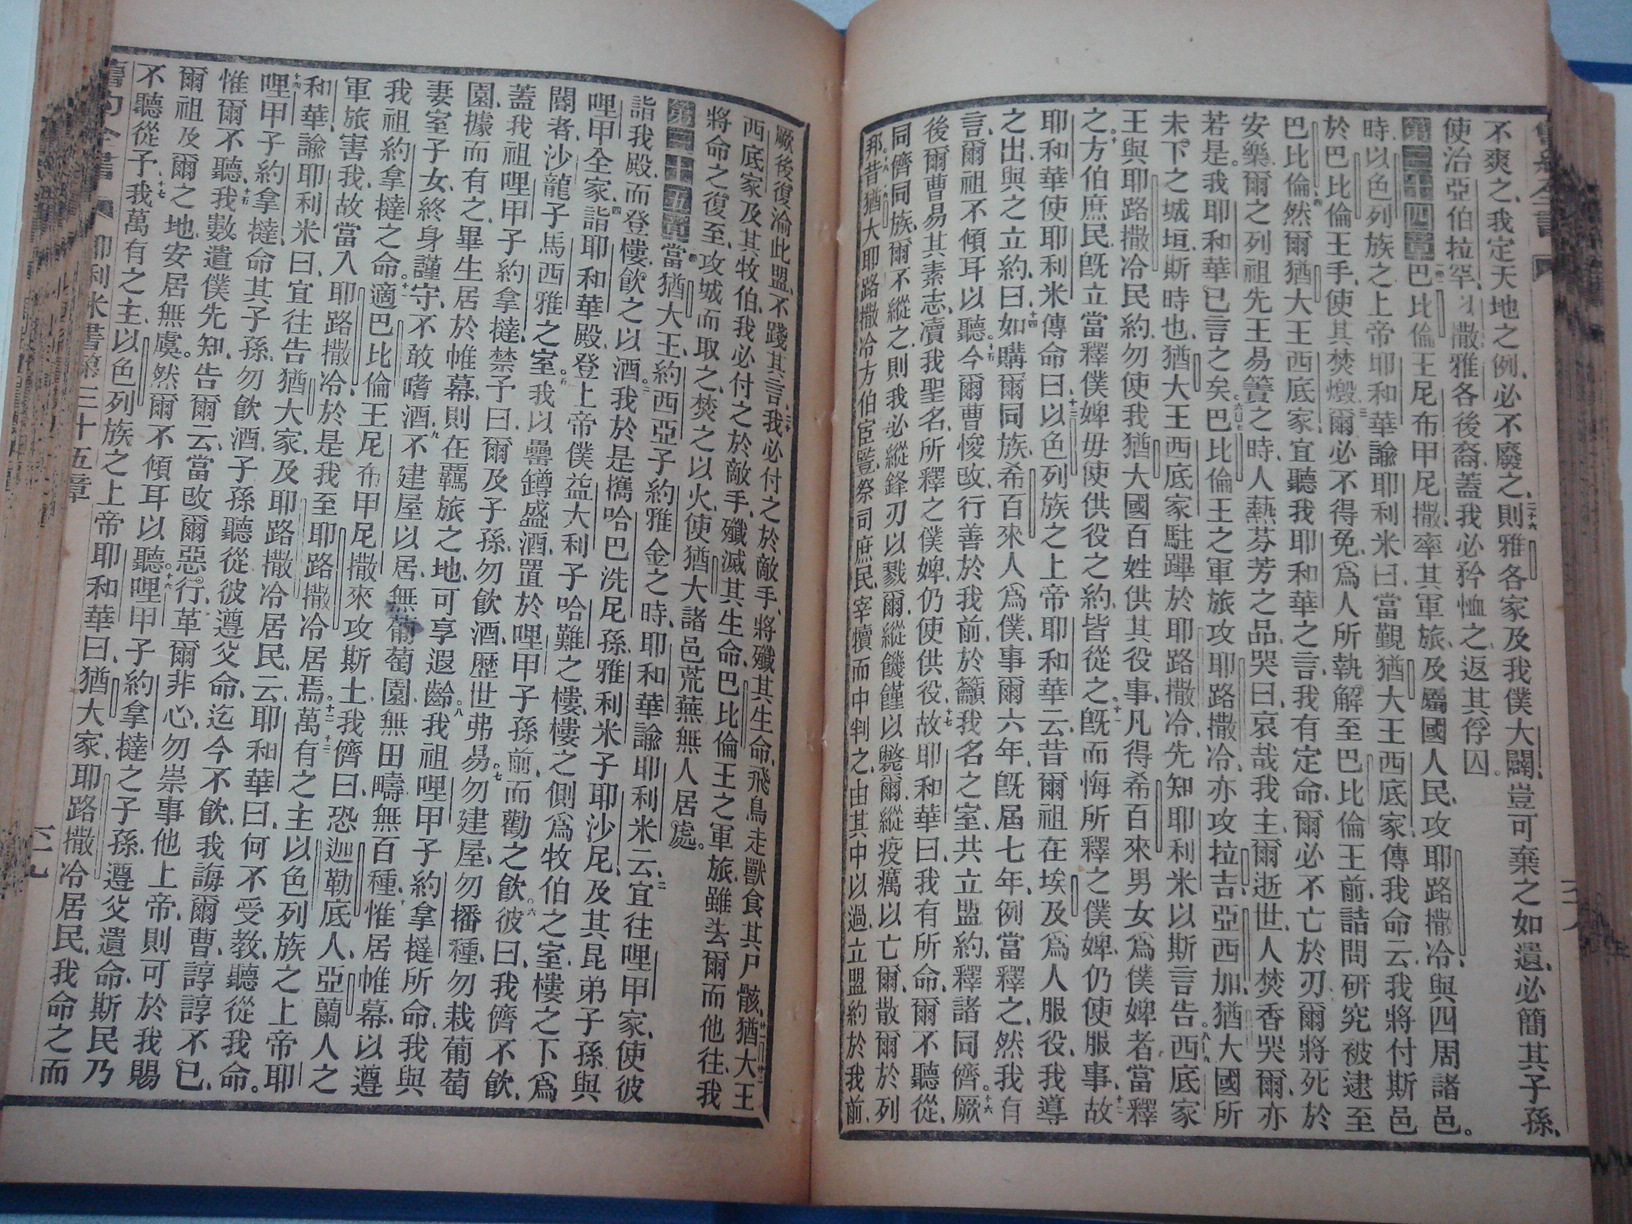 不爽之、我定天地之例、必不廢之、二十六則雅各家及我僕大闢、豈可棄之如遺、必簡其子孫、
使治亞伯拉罕以撒雅各後裔、蓋我必矜恤之、返其俘囚。
第三十四章 巴比倫王尼布甲尼撒率其軍旅、及屬國人民、攻耶路撒冷、與四周諸邑。
時以色列族之上帝耶和華諭耶利米曰、當覲猶大王西底家、傳我命云、我將付斯邑
於巴比倫王手、使其焚燬、三爾必不得免、為人所執、解至巴比倫王前、詰問研究、被逮至
巴比倫、四然爾猶大王西底家、宜聽我耶和華之言、我有定命、爾必不亡於刃、爾將死於
安樂、爾之列祖先王易簀之時、人爇芬芳之品、哭曰、哀哉我主、爾逝世、人焚香哭爾亦
若是。我耶和華已言之矣、六七巴比倫王之軍旅、攻耶路撒冷、亦攻拉吉、亞西加、猶大國所
未下之城垣、斯時也、猶大王西底家駐蹕於耶路撒冷、先知耶利米以斯言告。八西底家
王與耶路撒冷民約、勿使我猶大國百姓供其役事、凡得希百來男女為僕婢者、當釋
之、十方伯庶民、旣立當釋僕婢、毋使供役之約、皆從之、十一旣而悔所釋之僕婢、仍使服事、十二故
耶和華使耶利米傳命曰、十三以色列族之上帝耶和華云、昔爾祖在埃及為人服役、我導
之出、與之立約曰、十四如購爾同族希百來人為僕、事爾六年、旣屆七年、例當釋之、然我有
言、爾祖不傾耳以聽、十五今爾曹悛改、行善於我前、於籲我名之室、共立盟約、釋諸同儕、十六厥
後爾曹易其素志、瀆我聖名、所釋之僕婢、仍使供役、十七故耶和華曰、我有所命、爾不聽從、
同儕同族、爾不縱之、則我必縱鋒刃以戮爾、縱饑饉以斃爾、縱疫癘以亡爾、散爾於列
邦、十八昔猶大耶路撒冷方伯宦豎、祭司庶民、宰犢而中判之、由其中以過、立盟約於我前、
厥後復渝此盟、不踐其言、二十我必付之於敵手、將殲其生命、飛鳥走獸食其尸骸、廿一廿二猶大王
西底家及其牧伯、我必付之於敵手、殲滅其生命、巴比倫王之軍旅雖去爾而他往、我
將命之復至、攻城而取之、焚之以火、使猶大諸邑荒蕪無人居處。
第三十五章 當猶大王約西亞子約雅金之時、耶和華諭耶利米云、二宜往哩甲家、使彼
詣我殿、而登樓、飲之以酒、三我於是攜哈巴洗尼孫雅利米子耶沙尼、及其昆弟子孫、與
哩甲全家、四詣耶和華殿、登上帝僕益大利子哈難之樓、樓之側、為牧伯之室、樓之下、為
閽者、沙龍子馬西雅之室。五我以罍鐏盛酒、置於哩甲子孫前、而勸之飲、六彼曰、我儕不飲、
蓋我祖哩甲子約拿撻禁予曰、爾及子孫、勿飲酒、歷世弗易、七勿建屋、勿播種、勿栽葡萄
園、據而有之、畢生居於帷幕、則在羈旅之地、可享遐齡、八我祖哩甲子約拿撻所命、我與
妻室子女、終身謹守、不敢嗜酒、九不建屋以居、無葡萄園、無田疇、無百種、十惟居帷幕、以遵
我祖約拿撻之命。十一適巴比倫王尼布甲尼撒來攻斯土、我儕曰、恐迦勒底人、亞蘭人之
軍旅害我、故當入耶路撒冷、於是我至耶路撒冷居焉。十二十三萬有之主、以色列族之上帝耶
和華、諭耶利米曰、宜往告猶大家、及耶路撒冷居民云、耶和華曰、何不受教、聽從我命。
十四哩甲子約拿撻、命其子孫勿飲酒、子孫聽從、彼遵父命、迄今不飲、我誨爾曹、諄諄不已、
惟爾不聽、十五我數遣僕先知、告爾云、當改爾惡行、革爾非心、勿崇事他上帝、則可於我賜
爾祖及爾之地、安居無虞。然爾不傾耳以聽、十六哩甲子約拿撻之子孫、遵父遺命、斯民乃
不聽從予、十七我萬有之主、以色列族之上帝耶和華曰、猶大家、耶路撒冷居民、我命之而
舊約全書 耶利米書第三十五章 六十九